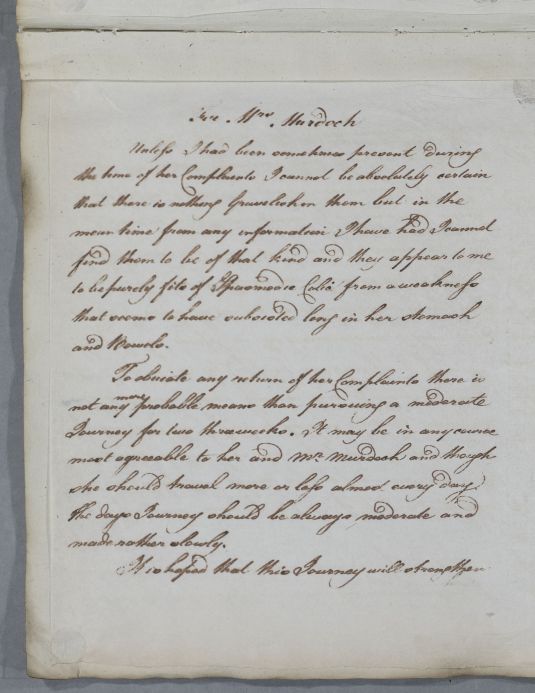 For Mrs. Murdoch
Unless I had been somehow present during
the time of her Complaints I cannot be absolutely certain
that there is nothing Gravelish in them but in the
mean time from any information I have had I cannot
find them to be of that kind and they appear to me
to be purely fits of Spasmodic Colic from a weakness
that seems to have subsisted long in her stomach
and Bowels.
To obviate any return of her Complaints there is
not any more probable means than pursuing a moderate
Journey for two three weeks. It may be in any course
most agreeable to her and Mr. Murdoch and though
she should travel more or less almost every day
the days Journey should be always moderate and
made rather slowly.
It is hoped that this Journey will strengthen